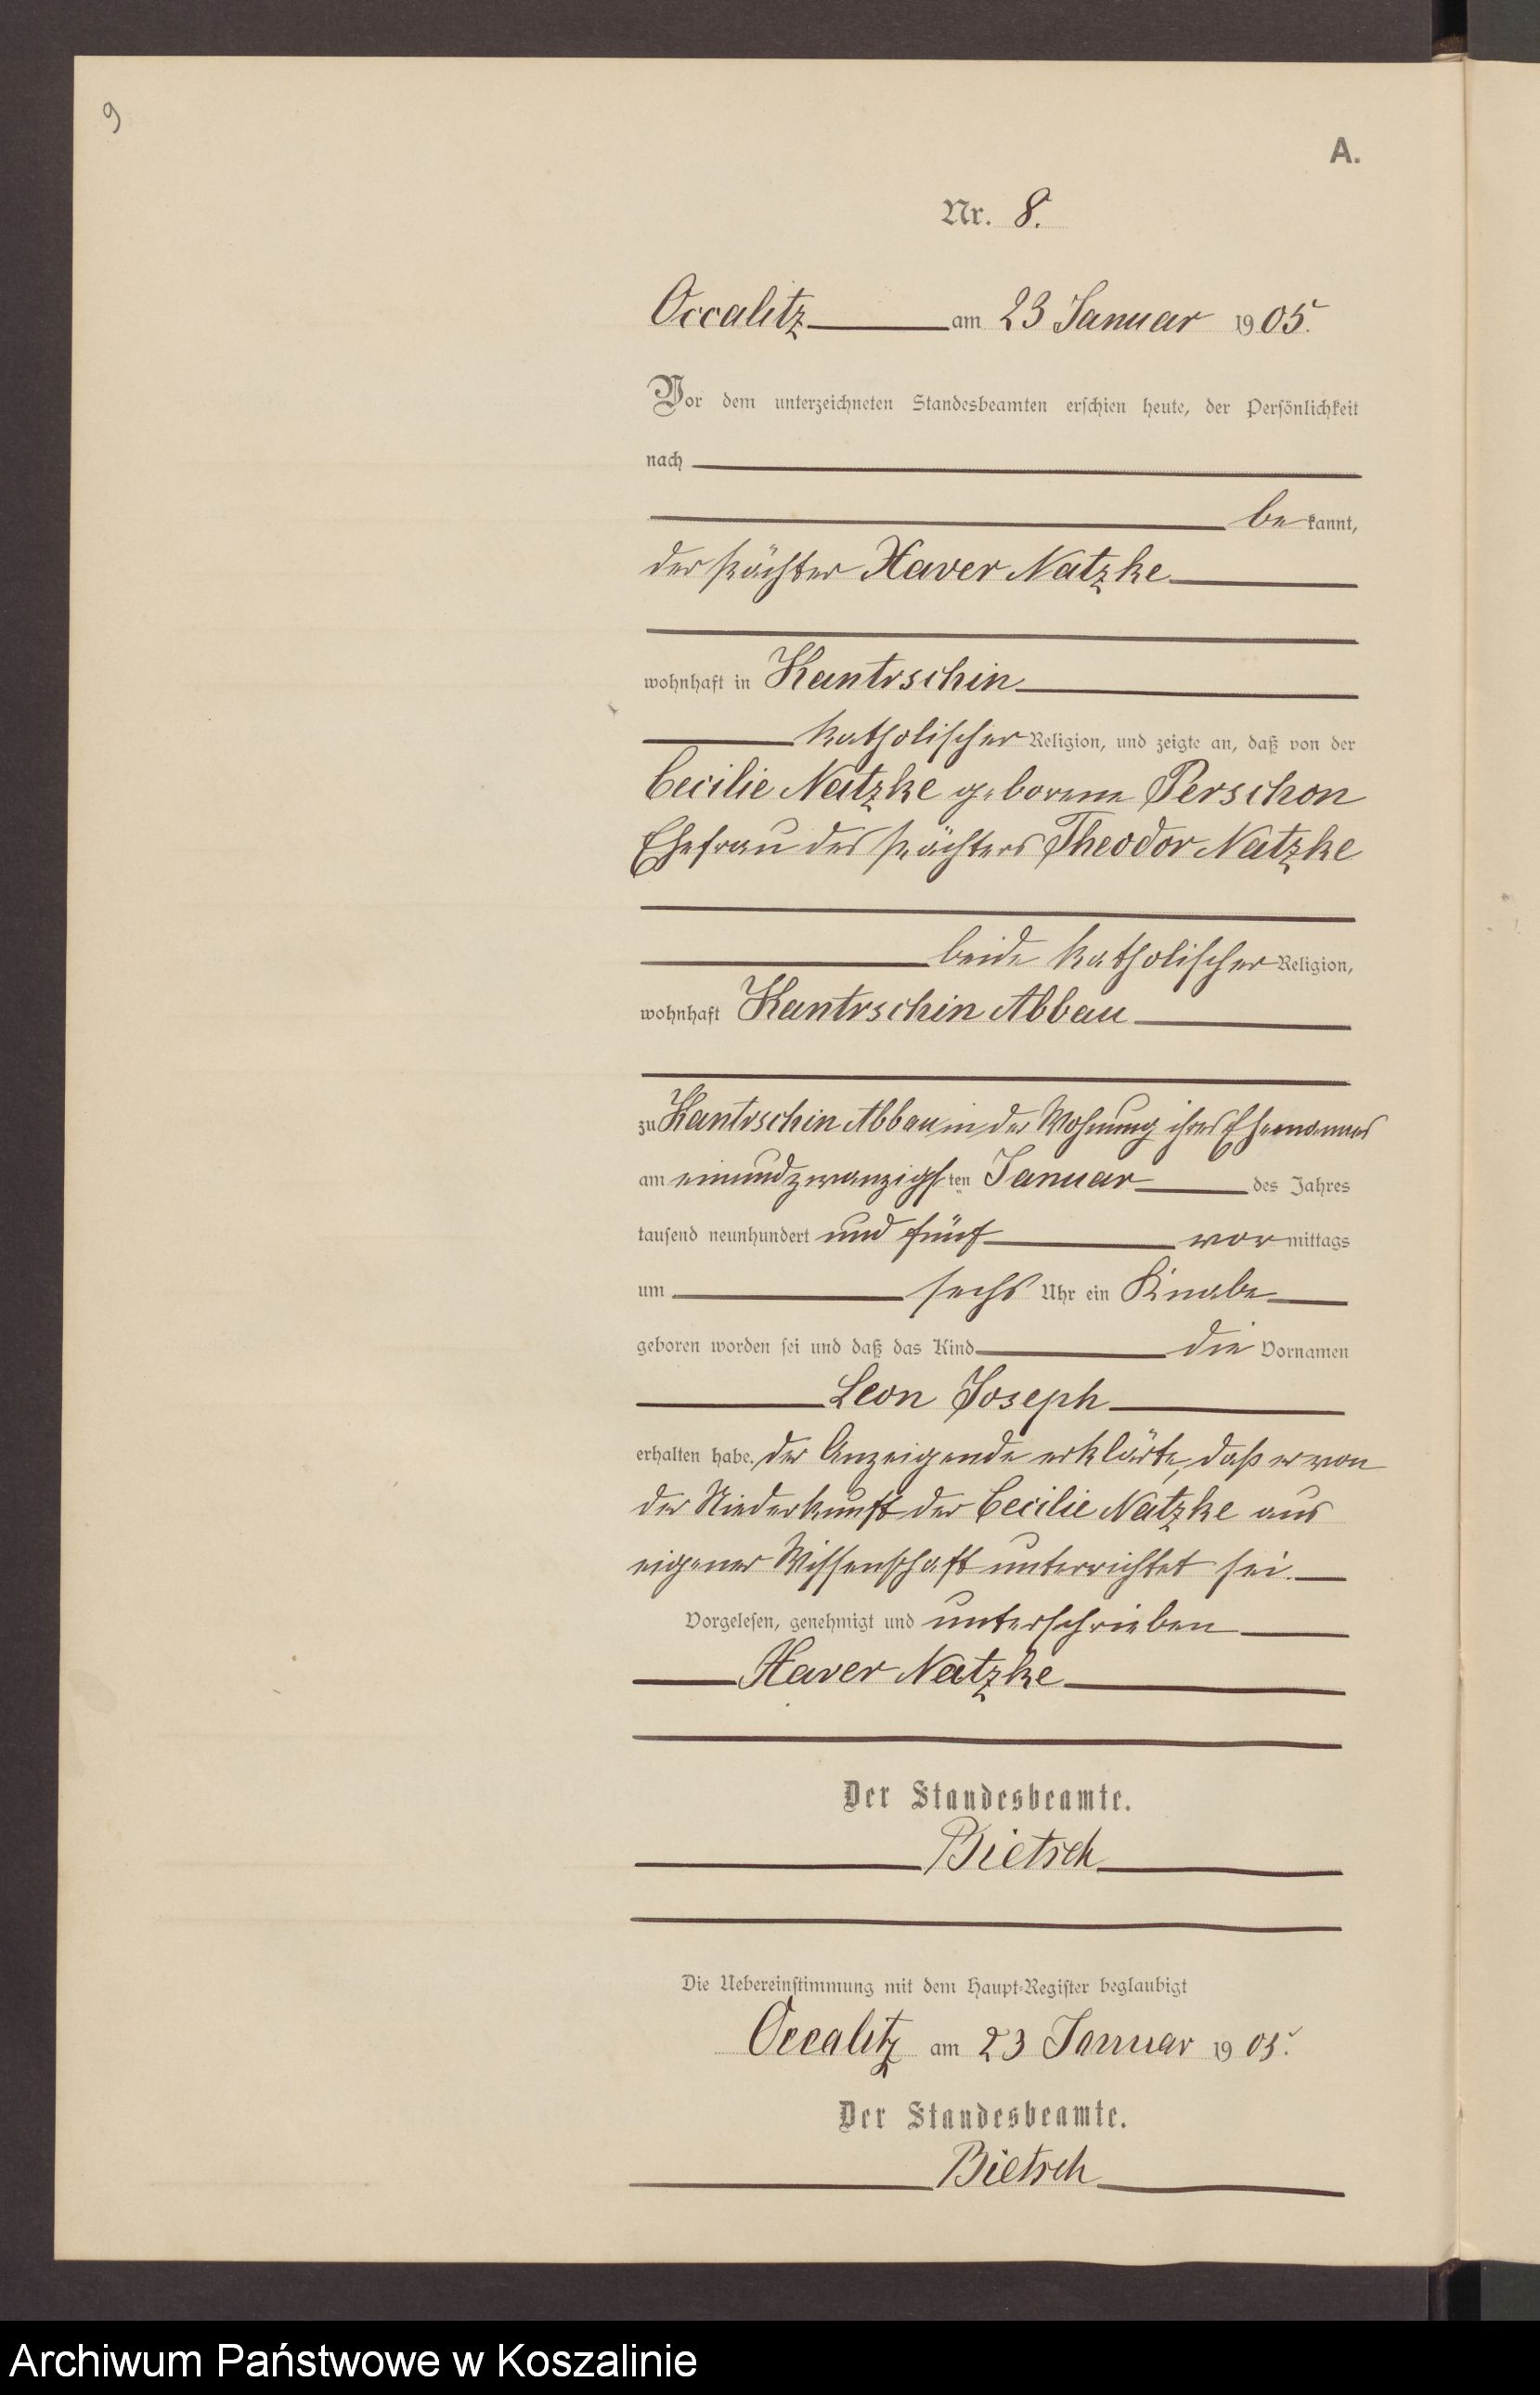 9
A.
Nr. 8.
Occalitz am 23 Januar 1905.
Vor dem unterzeichneten Standesbeamten erschien heute, der Persönlichkeit
nach
be kannt,
der Pächter Xaver Natzke
wohnhaft in Kantrschin
katholischer Religion, und zeigte an, daß von der
Cecilie Natzke geborene Perschon
Ehefrau des Pächters Theodor Natzke
beide katholischer Religion,
wohnhaft Kantrschin Abbau
zu Kantrschin Abbau in der Wohnung ihres Ehemannes
am einundzwanzigsten Januar des Jahres
tausend neunhundert und fünf vor mittags
um sechs Uhr ein Knabe
geboren worden sei und daß das Kind die Vornamen
Leon Joseph
erhalten habe. der Anzeigende erklärte, daß er von
der Niederkunft der Cecilie Natzke aus
eigener Wissenschaft unterrichtet sei.
Vorgelesen, genehmigt und unterschrieben
Xaver Natzke
Der Standesbeamte.
Bietsch
Die Uebereinstimmung mit dem Haupt-Register beglaubigt
Occalitz am 23 Januar 1905.
Der Standesbeamte.
Bietsch
Archiwum Państwowe w Koszalinie